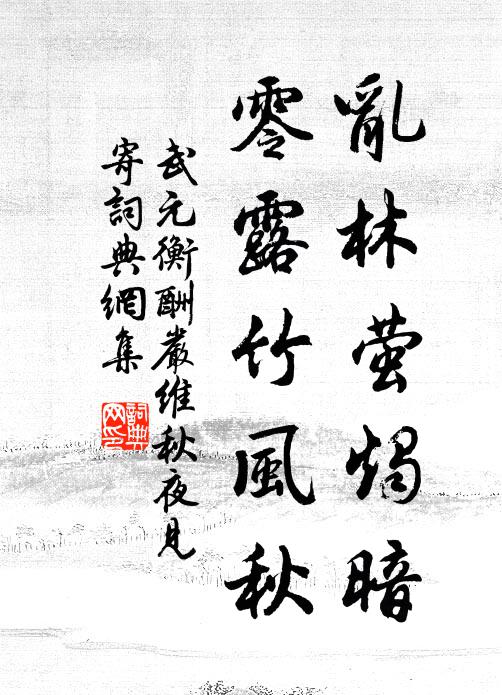 亂林萤燭暗
零露竹風秋
武元衡酬嚴維秋夜見
寄詞典網集
詞典网印